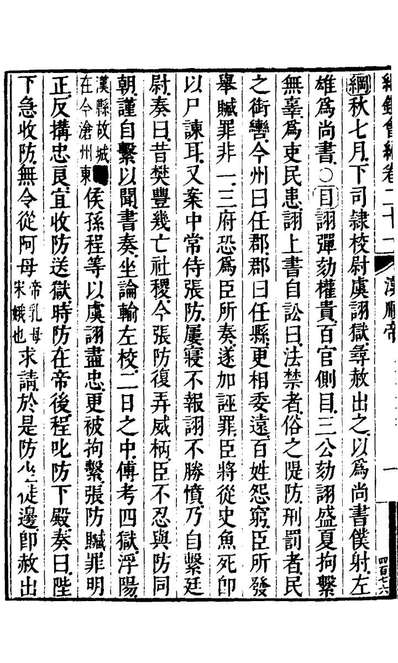 綱鑑會編卷二十一 漢順帝 一
綱秋七月下司隸校尉虞詡獄尋赦出之以為尚書僕射左
雄為尚書○目詡彈劾權貴百官側目三公劾詡盛夏拘繫
無辜為吏民患詡上書自訟曰法禁者俗之隄防刑罰者民
之銜轡今州曰任郡郡曰任縣更相委遠百姓怨窮臣所發
舉贓罪非一三府恐為臣所奏遂加誣罪臣將從史魚死卽
以尸諫耳又案中常侍張防屢寢不報詡不勝憤乃自繫廷
尉奏曰昔樊豐幾亡社稷今張防復弄威柄臣不忍與防同
朝謹自繫以聞書奏坐論輸左校二日之中傳考四獄浮陽
漢縣故城在今滄州東侯孫程等以虞詡盡忠更被拘繫張防贓罪明
正反搆忠良宜收防送獄時防在帝後程叱防下殿奏曰陛
下急收防無令從阿母帝乳母宋娥也求請於是防坐徙邊卽赦出
四百七六